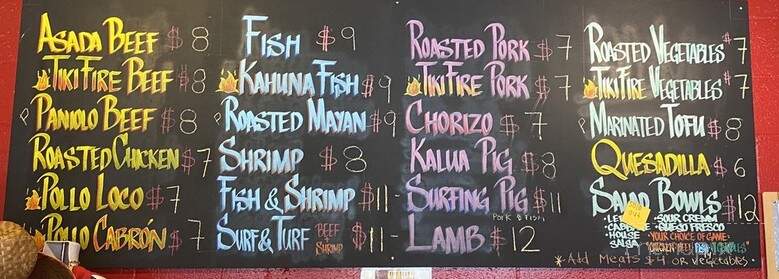 Asada Beef $8
Tiki Fire Beef $8
P Paniolo Beef $8
Roasted Chicken $7
Pollo Loco $7
Pollo Cabrón $7
Fish $9
Kahuna Fish $9
P Roasted Mayan $9
Shrimp $8
Fish & Shrimp $11-
Surf & Turf Beef Shrimp $11-
Roasted Pork $7
Tiki Fire Pork $7
Chorizo $7
Kalua Pig $8
Surfing Pig $11
Pork & Fish
Lamb $12
Roasted Vegetables $7
Tiki Fire Vegetables $7
P Marinated Tofu $8
Quesadilla $6
Salad Bowls $12
• Sour Cream
• Queso Fresco
• House Salsa
• Your Choice of Game:
* Add Meats $4 or vegetables